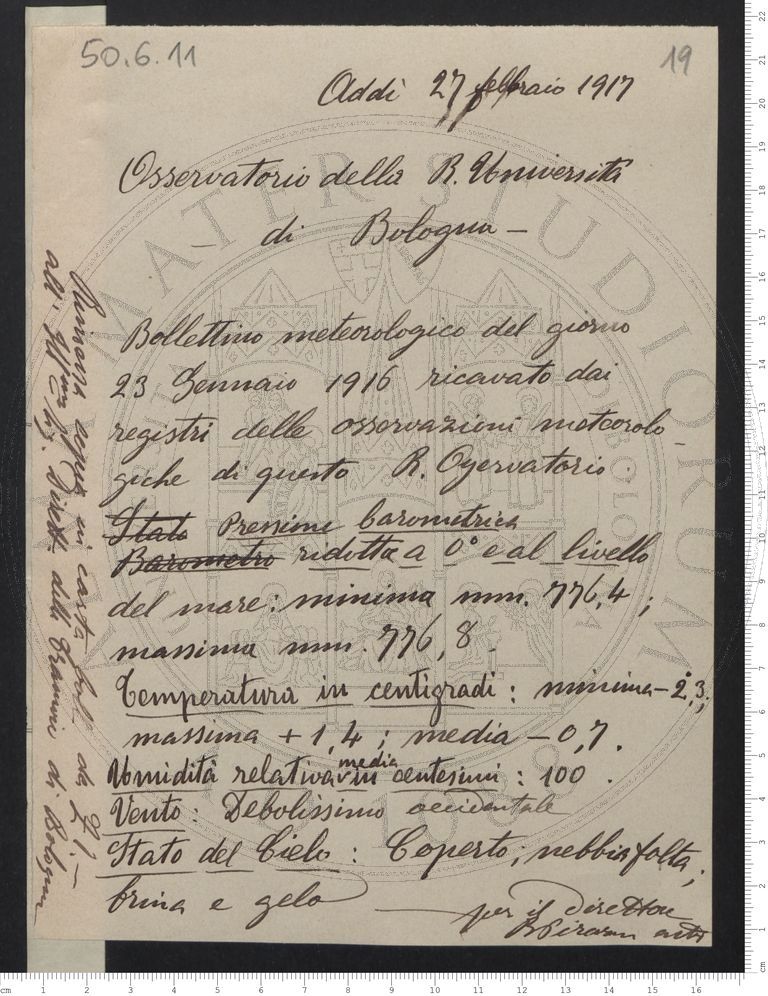 50.6.11
19
Addì 27 febbraio 1917
Osservatorio della R. Università
– di Bologna –
Bollettino meteorologico del giorno
23 Gennaio 1916 ricavato dai
registri delle osservazioni meteorolo-
giche di questo R. Osservatorio.
Stato Pressione barometrica
Barometro ridotta a 0° e al livello
del mare: minima mm. 776,4;
massima mm. 776,8.
Temperatura in centigradi: minima –2°,3;
massima +1,4; media –0,7.
media
Umidità relativa in centesimi: 100.
Vento: Debolissimo occidentale
Stato del Cielo: Coperto; nebbia folta;
brina e gelo
per il Direttore
in carta da
all' della di Bologna
ALMA MATER STUDIORUM